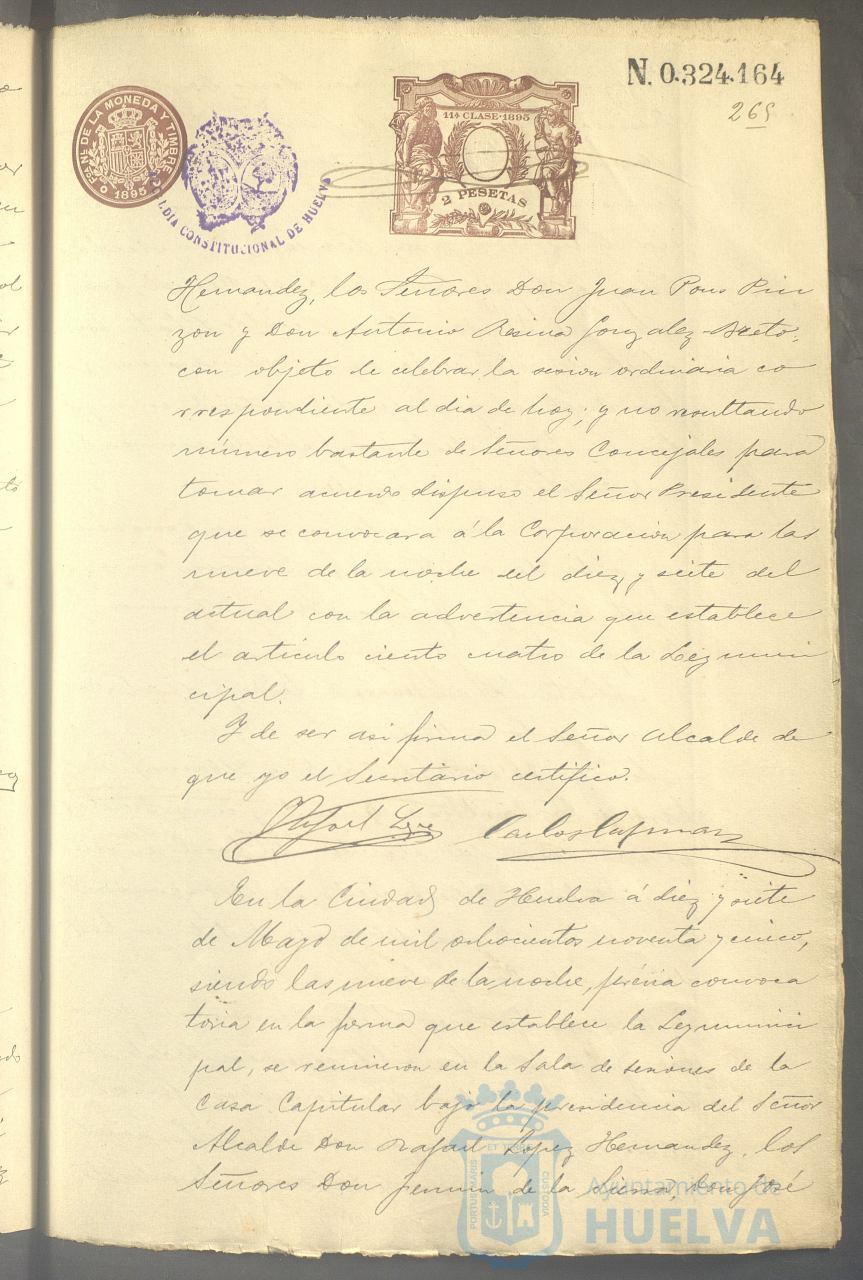 N. 0.324.164
265
FCA. NAL. DE LA MONEDA Y TIMBRE
1895
11ª CLASE · 1895
2 PESETAS
LDIA CONSTITUCIONAL DE HUELVA
Hernandez, los Señores Don Juan Pons Pin
zon y Don Antonio Resina Gonzalez Nieto,
con objeto de celebrar la sesion ordinaria co
rrespondiente al dia de hoy; y no resultando
número bastante de Señores Concejales para
tomar acuerdo dispuso el Señor Presidente
que se convocara á la Corporacion para las
nueve de la noche del diez y siete del
actual con la advertencia que establece
el articulo ciento cuatro de la Ley muni
cipal.
Y de ser asi firma el Señor Alcalde de
que yo el Secretario certifico.
Rafael Carlos
En la Ciudad de Huelva á diez y siete
de Mayo de mil ochocientos noventa y cinco,
siendo las nueve de la noche, prévia convoca
toria en la forma que establece la Ley munici
pal, se reunieron en la Sala de sesiones de la
Casa Capitular bajo la presidencia del Señor
Alcalde Don Rafael Lopez Hernandez, los
Señores Don Fermin de la Sierra, Don José
PORTUS MARIS ET TERRAE CUSTODIA
Ayuntamiento de
HUELVA